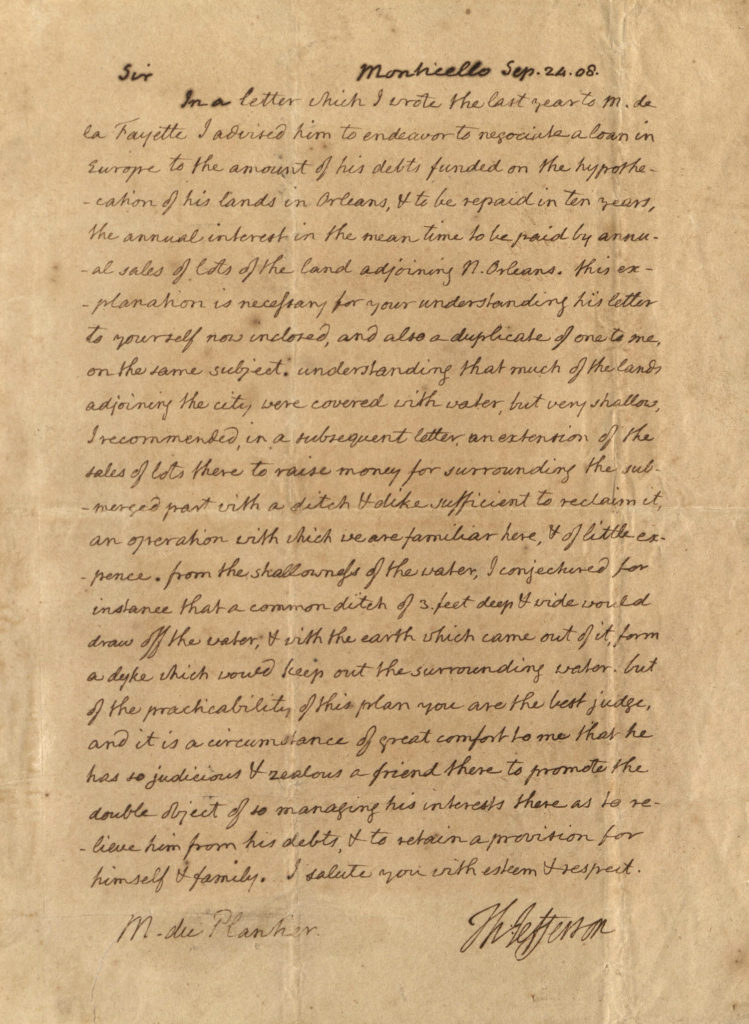 Sir Monticello Sep. 24. 08.
In a letter which I wrote the last year to M. de
la Fayette I advised him to endeavor to negociate a loan in
Europe to the amount of his debts funded on the hypothe-
-cation of his lands in Orleans, & to be repaid in ten years,
the annual interest in the mean time to be paid by annu-
-al sales of lots of the land adjoining N. Orleans. this ex-
-planation is necessary for your understanding his letter
to yourself now inclosed, and also a duplicate of one to me,
on the same subject. understanding that much of the lands
adjoining the city were covered with water, but very shallow,
I recommended, in a subsequent letter, an extension of the
sales of lots there to raise money for surrounding the sub-
-merged part with a ditch & dike sufficient to reclaim it,
an operation with which we are familiar here, & of little ex-
-pence. from the shallowness of the water, I conjectured for
instance that a common ditch of 3. feet deep & wide would
draw off the water, & with the earth which came out of it, form
a dyke which would keep out the surrounding water. but
of the practicability of this plan you are the best judge,
and it is a circumstance of great comfort to me that he
has so judicious & zealous a friend there to promote the
double object of so managing his interests there as to re-
-lieve him from his debts, & to retain a provision for
himself & family. I salute you with esteem & respect.
M. du Plantier. Th Jefferson